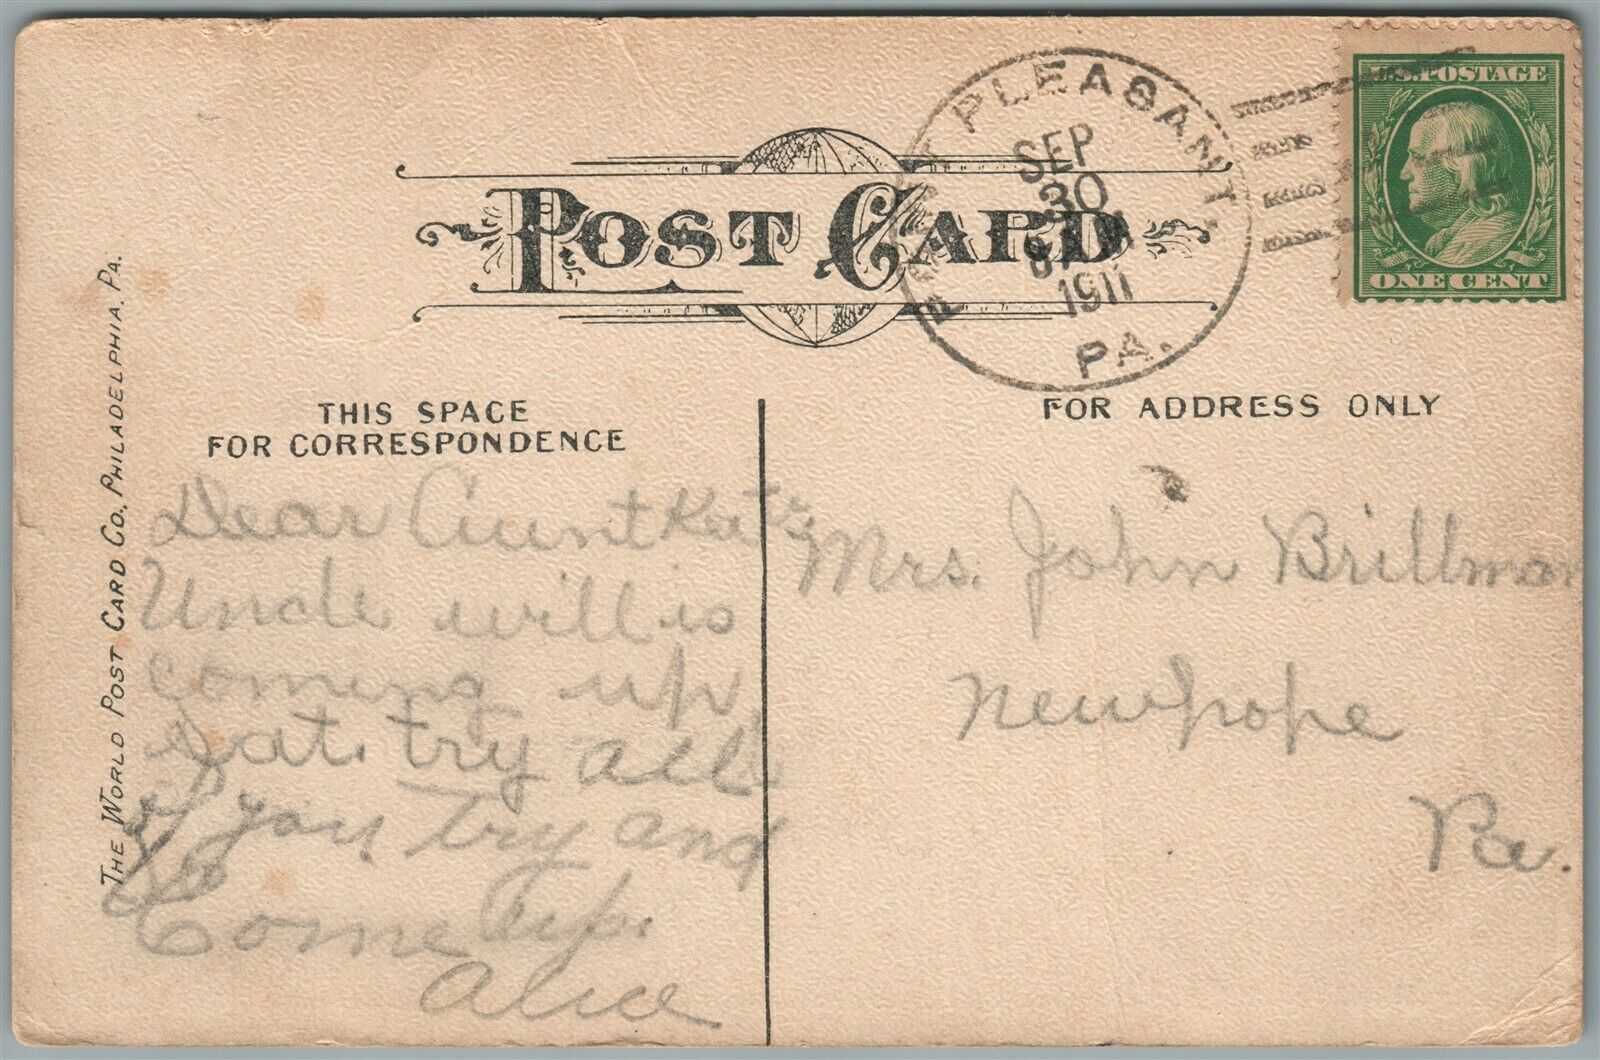 POINT PLEASANT
SEP
30
1911
PA.
U.S. POSTAGE
ONE CENT
POST CARD
THIS SPACE
FOR CORRESPONDENCE
FOR ADDRESS ONLY
THE WORLD POST CARD CO., PHILADELPHIA. PA.
Dear Aunt Kate
Uncle will is
coming up
sat. try all
of you try and
Come up.
Alice
Mrs. John Brillman
Newhope
Pa.